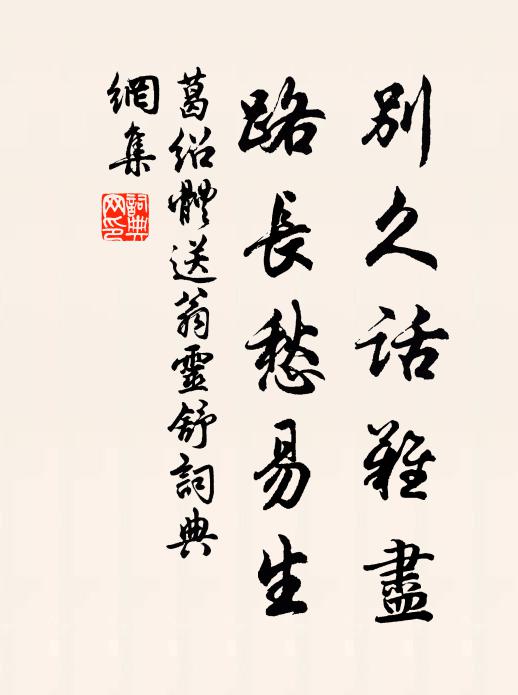 別久话難盡
路長愁易生
葛紹體送翁靈舒詞典
網集
詞典
网印